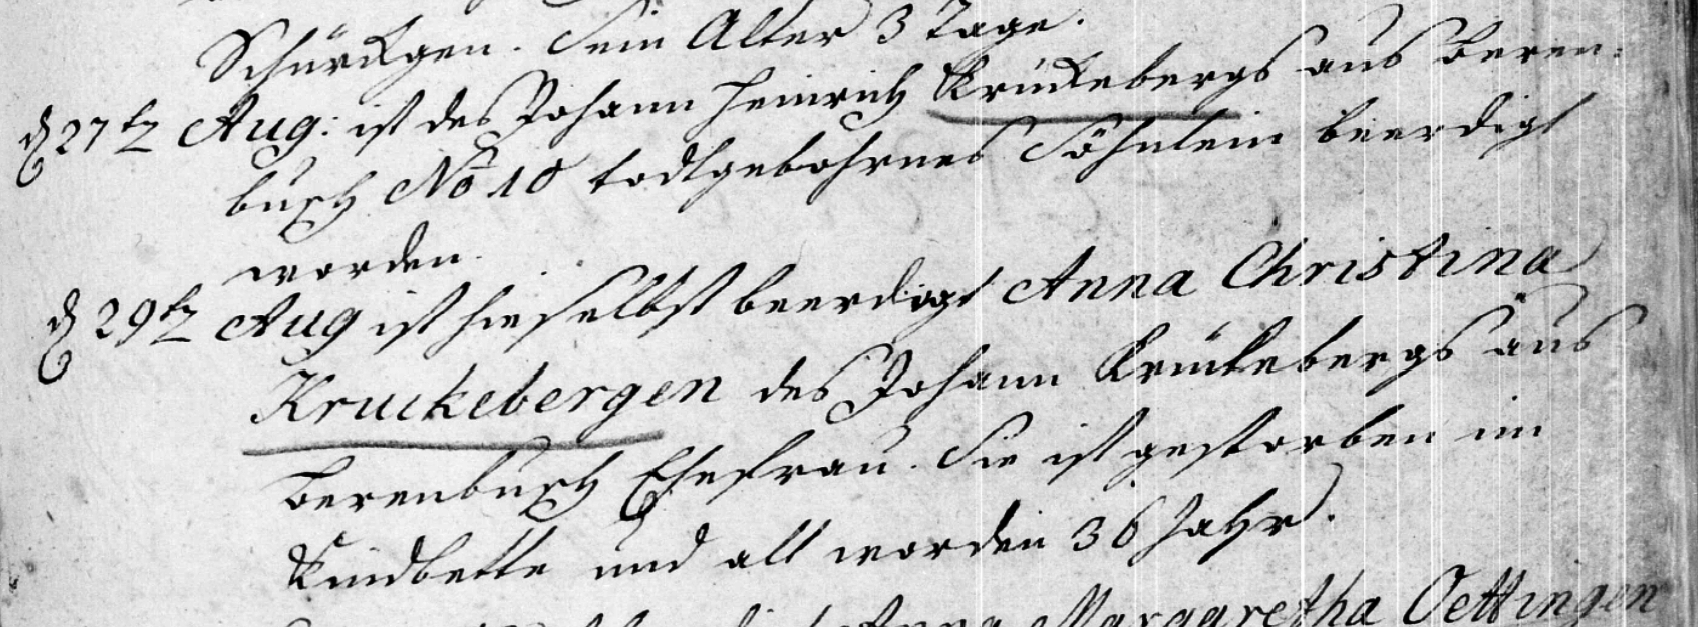 Schürckgen. Sein Alter 3 Tage.
d 27t Aug: ist des Johann Heinrich Krückebergs aus Beren-
busch No 10 todtgebohrnes Söhnlein beerdigt
worden.
d 29t Aug ist hieselbst beerdigt Anna Christina
Kruckebergen des Johann Krückebergs aus
Berenbusch Ehefrau. Sie ist gestorben im
Kindbette und alt worden 36 Jahr.
Anna Margaretha Oettingen